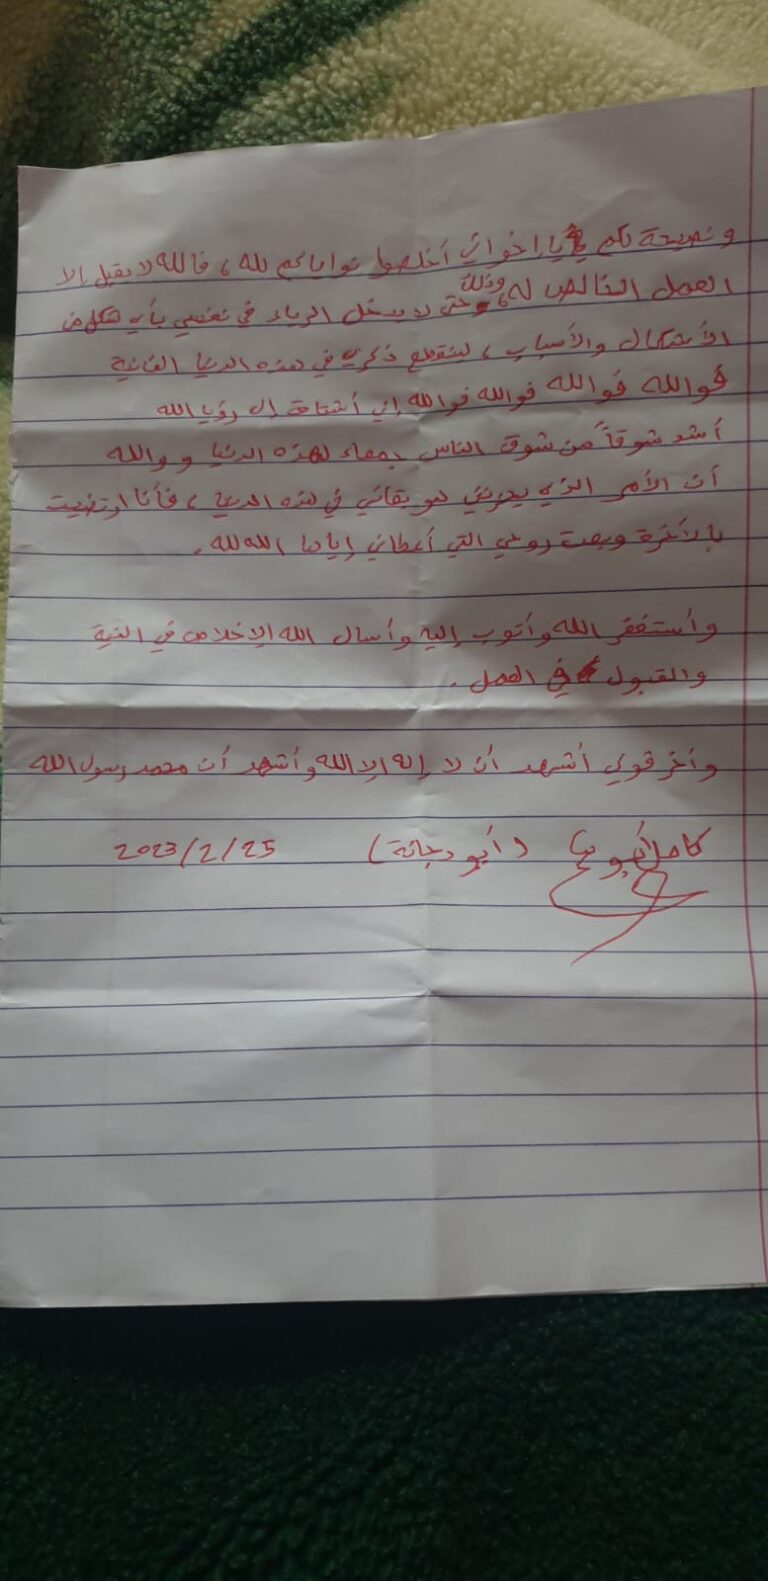 ونصيحة لكم يا إخواني أخلصوا نواياكم لله، فالله لا يقبل إلا
العمل الخالص له، وذلك حتى لا يدخل الرياء في نفسي بأي شكل من
الأشكال والأسباب، لينقطع ذكري في هذه الدنيا الفانية
فوالله فوالله فوالله فوالله إني أشتاق إلى رؤيا الله
أشد شوقاً من شوق الناس جمعاء لهذه الدنيا ووالله
أن الأمر الذي يحزنني هو بقائي في هذه الدنيا، فأنا ارتضيت
بالأخرة وبعت روحي التي أعطاني إياها الله لله.
وأستغفر الله وأتوب إليه وأسال الله الإخلاص في النية
والقبول في العمل.
وأخر قولي أشهد أن لا إله إلا الله وأشهد أن محمد رسول الله
كامل (أبو دجانة) 2023/2/25